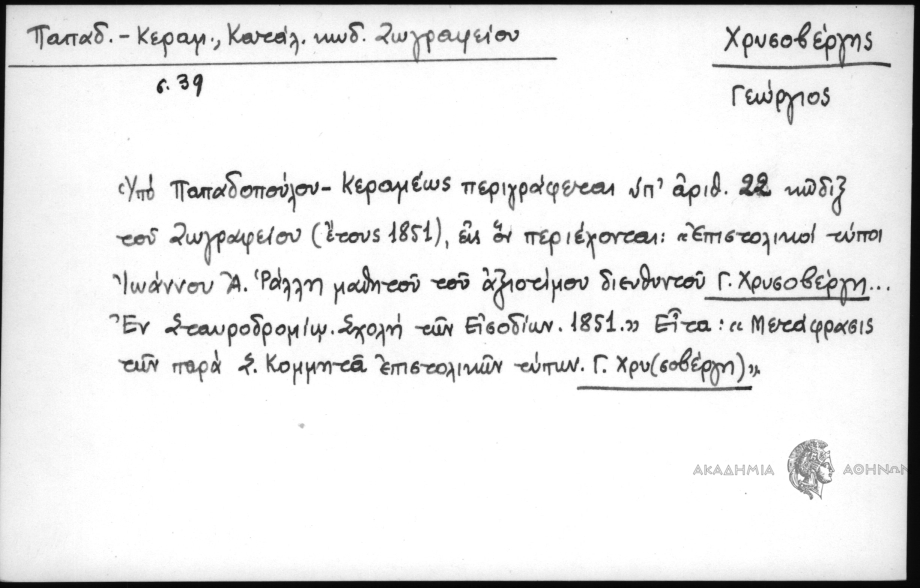 Παπαδ. - Κεραμ., Κατάλ. κωδ. Ζωγραφείου
Χρυσοβέργης
σ. 39
Γεώργιος
«Ὑπό Παπαδοπούλου - Κεραμέως περιγράφεται ὑπ' ἀριθ. 22 κῶδιξ
τοῦ Ζωγραφείου (ἔτους 1851), εἰς ὅν περιέχονται: «Ἐπιστολικοί τύποι
Ἰωάννου Ἀ. Ῥάλλη μαθητοῦ τοῦ ἀξιοτίμου διευθυντοῦ Γ. Χρυσοβέργη...
Ἐν Σταυροδρομίῳ. Σχολή τῶν Εἰσοδίων. 1851.» Εἶτα: «Μετάφρασις
τῶν παρά Σ. Κομμητᾶ ἐπιστολικῶν τύπων. Γ. Χρυ(σοβέργη)».
ΑΚΑΔΗΜΙΑ ΑΘΗΝΩΝ